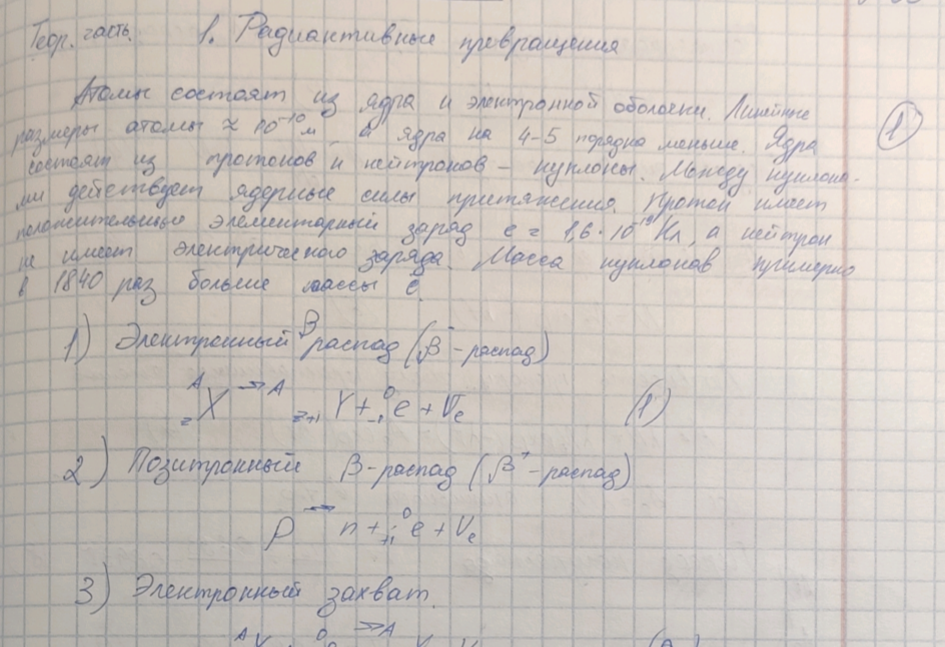 Теор. часть. 1. Радиактивные превращения
Атомы состоят из ядра и электронной оболочки. Линейные
размеры атомы ≈ 10⁻¹⁰ м, а ядра на 4-5 порядка меньше. Ядра
состоят из протонов и нейтронов – нуклоны. Между нуклона-
ми действует ядерные силы притяжения. Протон имеет
положительный элементарный заряд e = 1,6·10⁻¹⁹ Кл, а нейтрон
не имеет электрического заряда. Масса нуклонов примерно
в 1840 раз больше массы e.
①
1) Электронный β распад (β⁻-распад)
ᴬ_zX → ᴬ_z+1 Y + ⁰_-1 e + ν̅_e (1)
2) Позитронный β-распад (β⁺-распад)
p → n + ⁰_+1 e + ν_e
3) Электронный захват.